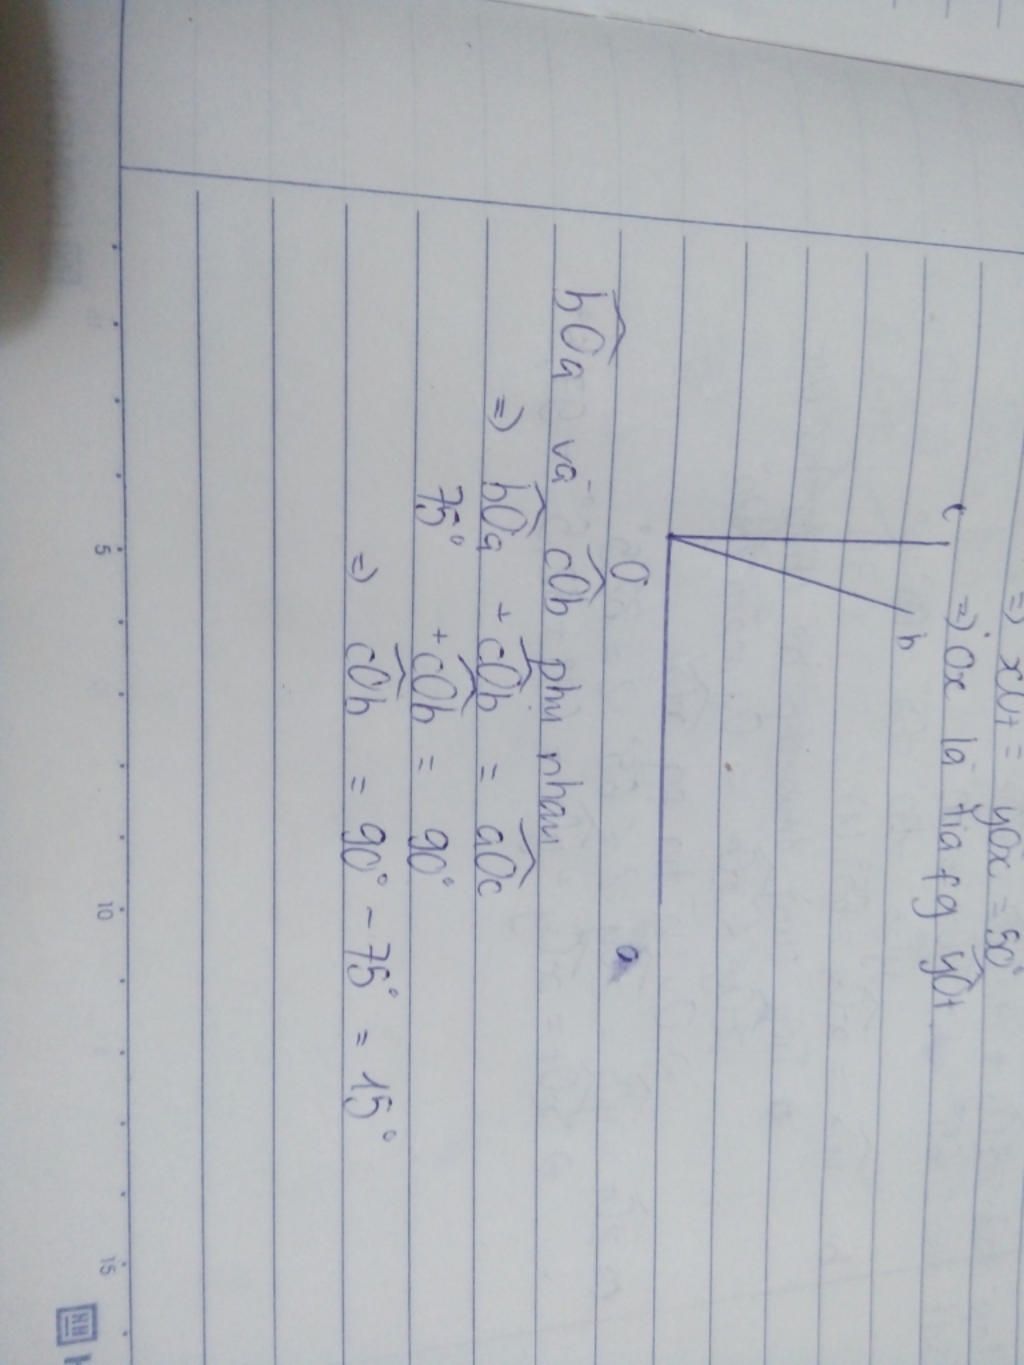 => xOt = yOx = 50°
=> Ox là tia fg yOt
c
b
O
a
bOa và cOb phụ nhau
=> bOa + cOb = aOc
75° + cOb = 90°
=> cOb = 90° - 75° = 15°
5 10 15